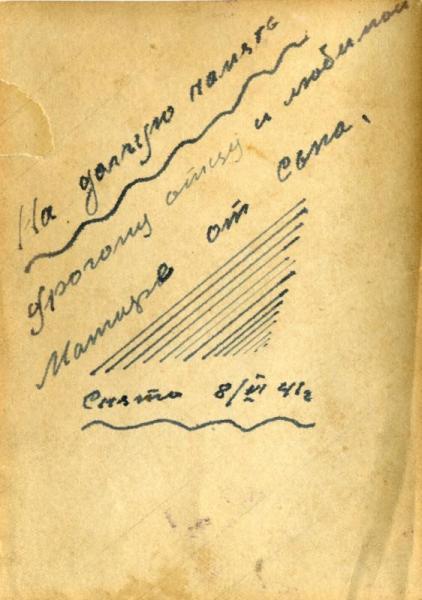 На долгую память
дрогому отцу и любимой
Матире от сына.
Снято 8/III 41г